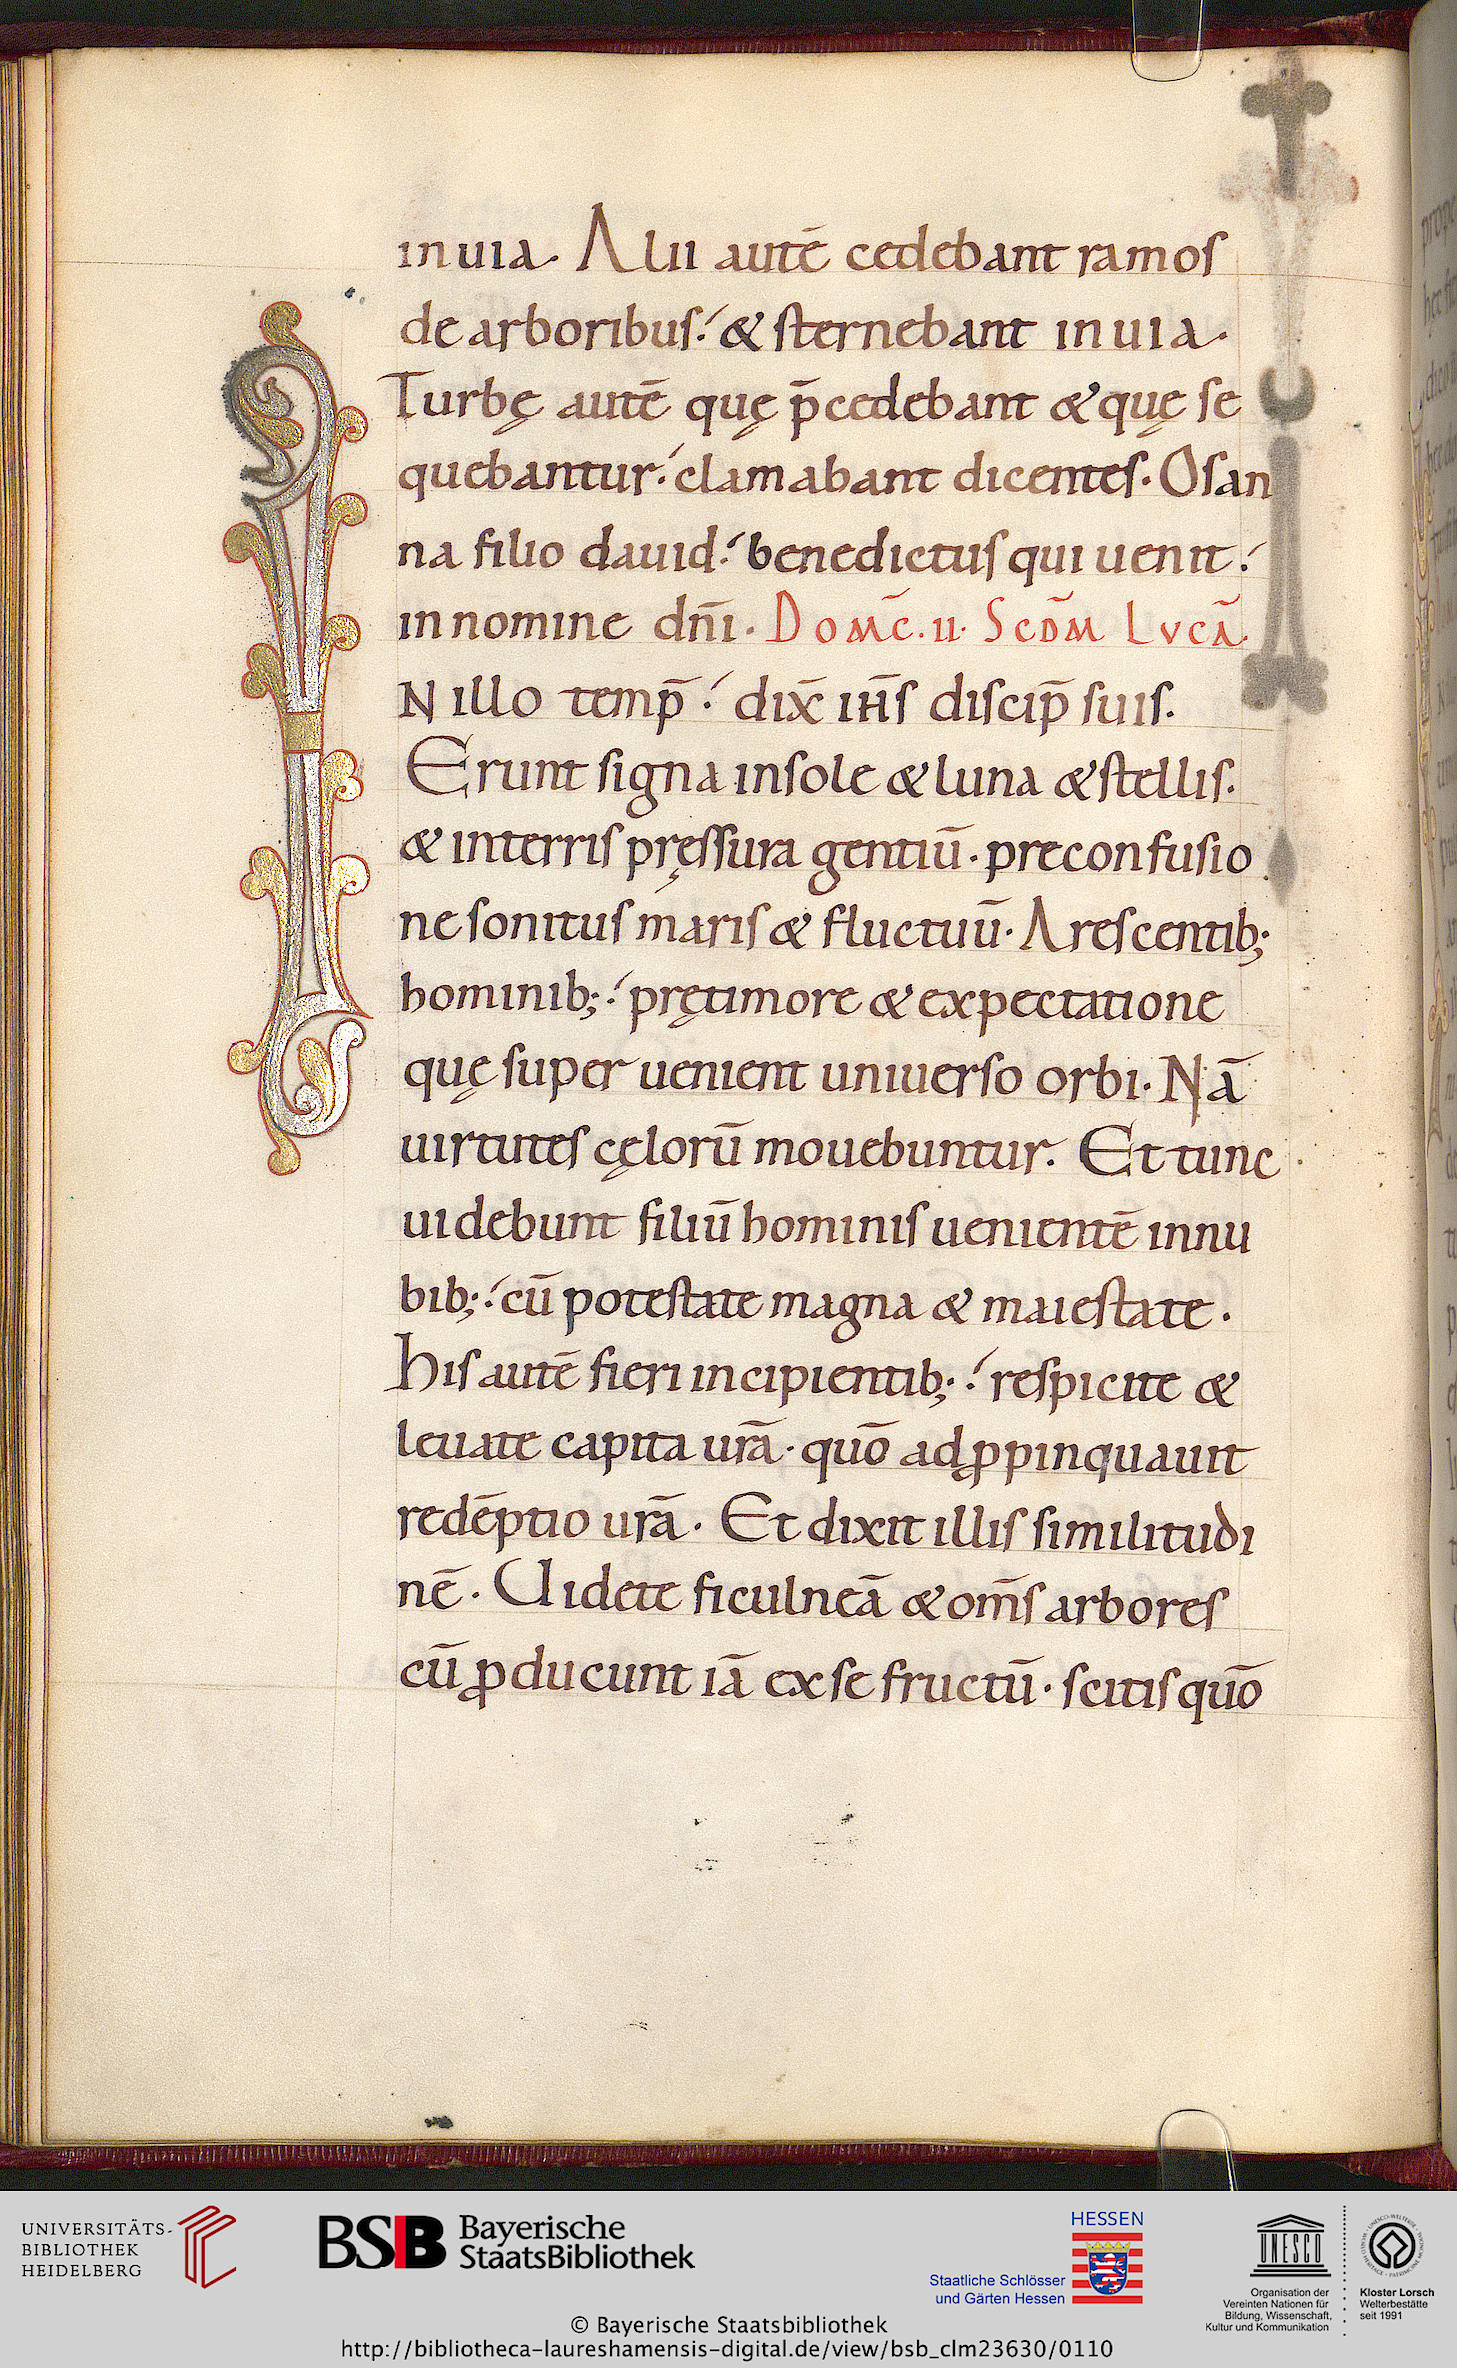 in uia. Alii autē cedebant ramos
de arboribus. & sternebant in uia.
Turbę autē quę p̄cedebant & quę se
quebantur. clamabant dicentes. Osan
na filio dauid. benedictus qui uenit.
in nomine dn̄i. DOMC̄. II. SCDM̄ LVCĀ.
N illo temp̄. dix̄ ih̄s discip̄ suis.
Erunt signa in sole & luna & stellis.
& in terris pręssura gentiū. pre confusio
ne sonitus maris & fluctuū. Arescentib;
hominib;. prę timore & expectatione
quę super uenient uniuerso orbi. Nā
uirtutes cęlorū mouebuntur. Et tunc
uidebunt filiū hominis uenientē in nu
bib;. cū potestate magna & maiestate.
his autē fieri incipientib;. respicite &
leuate capita ur̄a. quō adꝓpinquauit
redēptio ur̄a. Et dixit illis similitudi
nē. Uidete ficulneā & om̄s arbores
cū ꝓducunt iā ex se fructū. scitis quō
UNIVERSITÄTS-
BIBLIOTHEK
HEIDELBERG
BSB Bayerische
StaatsBibliothek
HESSEN
Staatliche Schlösser
und Gärten Hessen
UNESCO
Organisation der
Vereinten Nationen für
Bildung, Wissenschaft,
Kultur und Kommunikation
Kloster Lorsch
Welterbestätte
seit 1991
© Bayerische Staatsbibliothek
http://bibliotheca-laureshamensis-digital.de/view/bsb_clm23630/0110